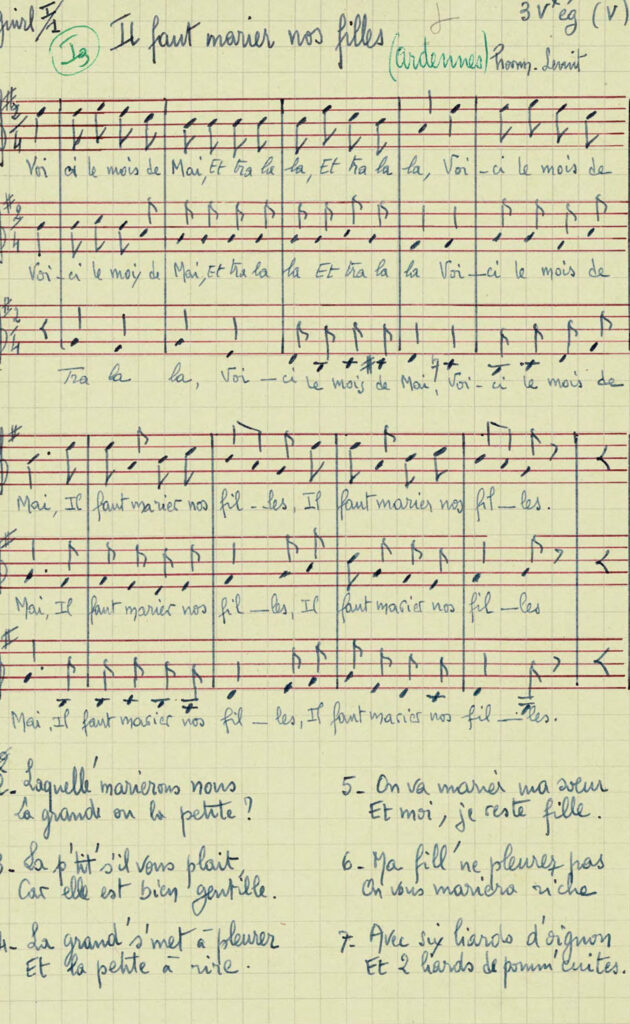 I3
Il faut marier nos filles
(ardennes)
3 v ég (V)
Voi ci le mois de Mai, Et tra la la, Et tra la la, Voi - ci le mois de
Voi - ci le mois de Mai, Et tra la la Et tra la la Voi - ci le mois de
Tra la la, Voi - ci le mois de Mai, Voi - ci le mois de
Mai, Il faut marier nos fil - les, Il faut marier nos fil - les.
Mai, Il faut marier nos fil - les, Il faut marier nos fil - les
Mai, Il faut marier nos fil - les, Il faut marier nos fil - les.
2 - Laquelle marierons nous
La grande ou la petite ?
3 - La p'tit' s'il vous plait,
Car elle est bien gentille.
4 - La grand' s'met à pleurer
Et la petite à rire.
5 - On va marier ma sœur
Et moi, je reste fille.
6 - Ma fill' ne pleurez pas
On vous mariera riche
7 - Avec six liards d'oignon
Et 2 liards de pomm' cuites.